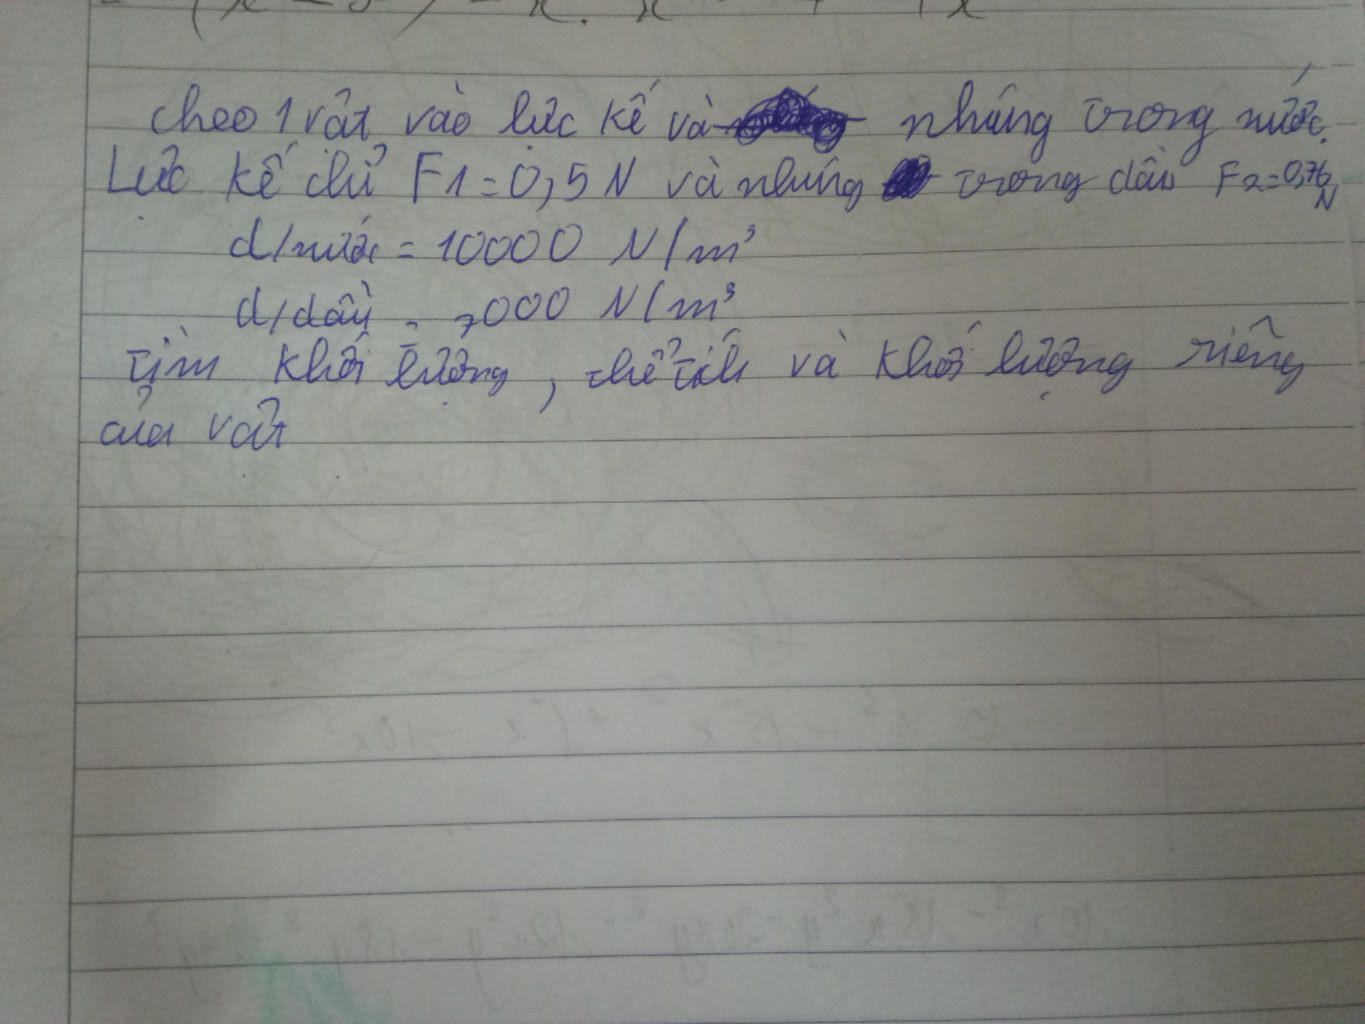 cheo 1 vật vào lực kế và nhúng trong nước.
Lực kế chỉ F1=0,5N và nhúng trong dầu F2=0,76N
d/nước = 10000 N/m³
d/dầu = 7000 N/m³
tìm khối lượng, thể tích và khối lượng riêng
của vật